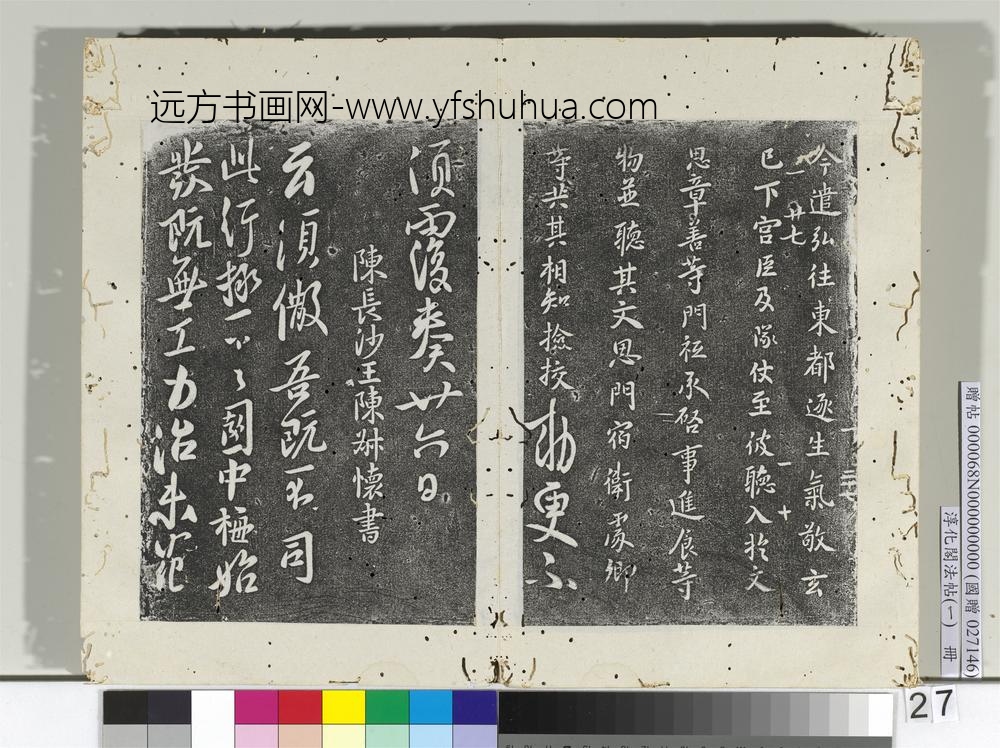 远方书画网-www.yfshuhua.com
今遣弘往東都逐生氣敬玄
已下宫臣及隊仗至彼聽入於文
思章善等門祗承啓事進食等
物並聽其文思門宿衛處卿
等共其相知撿挍勅更不
須覆奏廿六日
陳長沙王陳叔懷書
云須儆吾既不司
此行極不闍中極始
發既無工力治朱
贈帖 000068N000000000 (國贈 027146)
淳化閣法帖(一) 冊
27